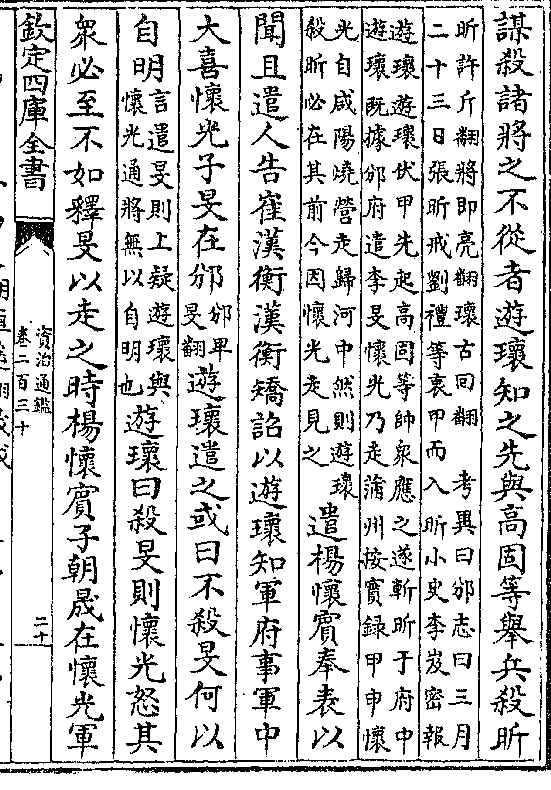 謀殺諸將之不從者遊瓌知之先與高固等舉兵殺昕
昕許斤翻將即亮翻瓌古囘翻　考異曰邠志曰三月
二十三日張昕戒劉禮等衷甲而入昕小史李岌密報
遊瓌遊瓌伏甲先起高固等帥衆應之遂斬昕于府中
遊瓌既據邠府遣李旻懷光乃走蒲州按實録甲申懷
光自咸陽燒營走歸河中然則遊瓌
殺昕必在其前今因懷光走見之
遣楊懷賓奉表以
聞且遣人告崔漢衡漢衡矯詔以遊瓌知軍府事軍中
大喜懷光子旻在邠
邠卑
旻翻
遊瓌遣之或曰不殺旻何以
自明
言遣旻則上疑遊瓌與
懷光通將無以自明也
遊瓌曰殺旻則懷光怒其
衆必至不如釋旻以走之時楊懷賓子朝晟在懷光軍
欽定四庫全書
資治通鑑
卷二百三十
二十